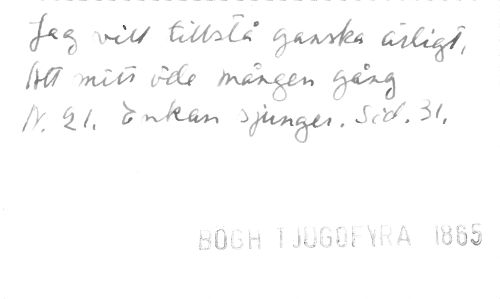 Jag vill tillstå ganska ärligt,
Att mitt öde mången gång
N. 21. Enkan sjunger. Sid. 31.
BÖGH TJUGOFYRA 1865